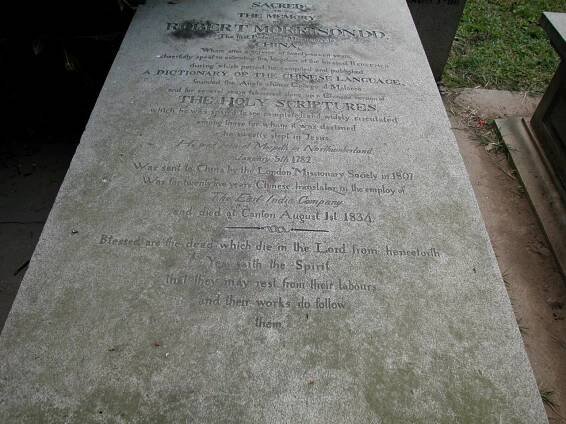 SACRED
TO
THE MEMORY
OF
ROBERT MORRISON, DD.
The first Protestant Missionary to
CHINA,
Where after a service of twenty-seven years,
cheerfully spent in extending the kingdom of the blessed REDEEMER
during which period he compiled and published
A DICTIONARY OF THE CHINESE LANGUAGE,
founded the Anglo Chinese College at Malacca
and for several years laboured alone on a Chinese version of
THE HOLY SCRIPTURES,
which he was spared to see completed and widely circulated
among those for whom it was destined
he sweetly slept in Jesus.
He was born at Morpeth in Northumberland
January 5th 1782
Was sent to China by the London Missionary Society in 1807
Was for twenty five years Chinese translator in the employ of
The East India Company
and died at Canton August 1st 1834.
Blessed are the dead which die in the Lord from henceforth
Yea saith the Spirit
that they may rest from their labours,
and their works do follow
them.